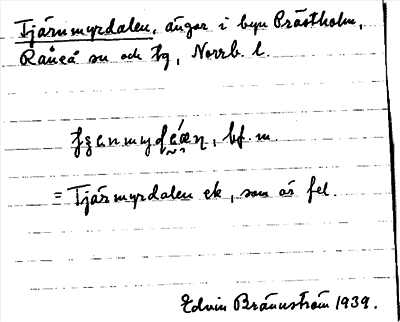 Tjärnmyrdalen, ängar i byn Prästholm,
Råneå sn och tg, Norrb. l.
bf. m.
= Tjärmyrdalen ek, som är fel.
Edvin Brännström 1939.